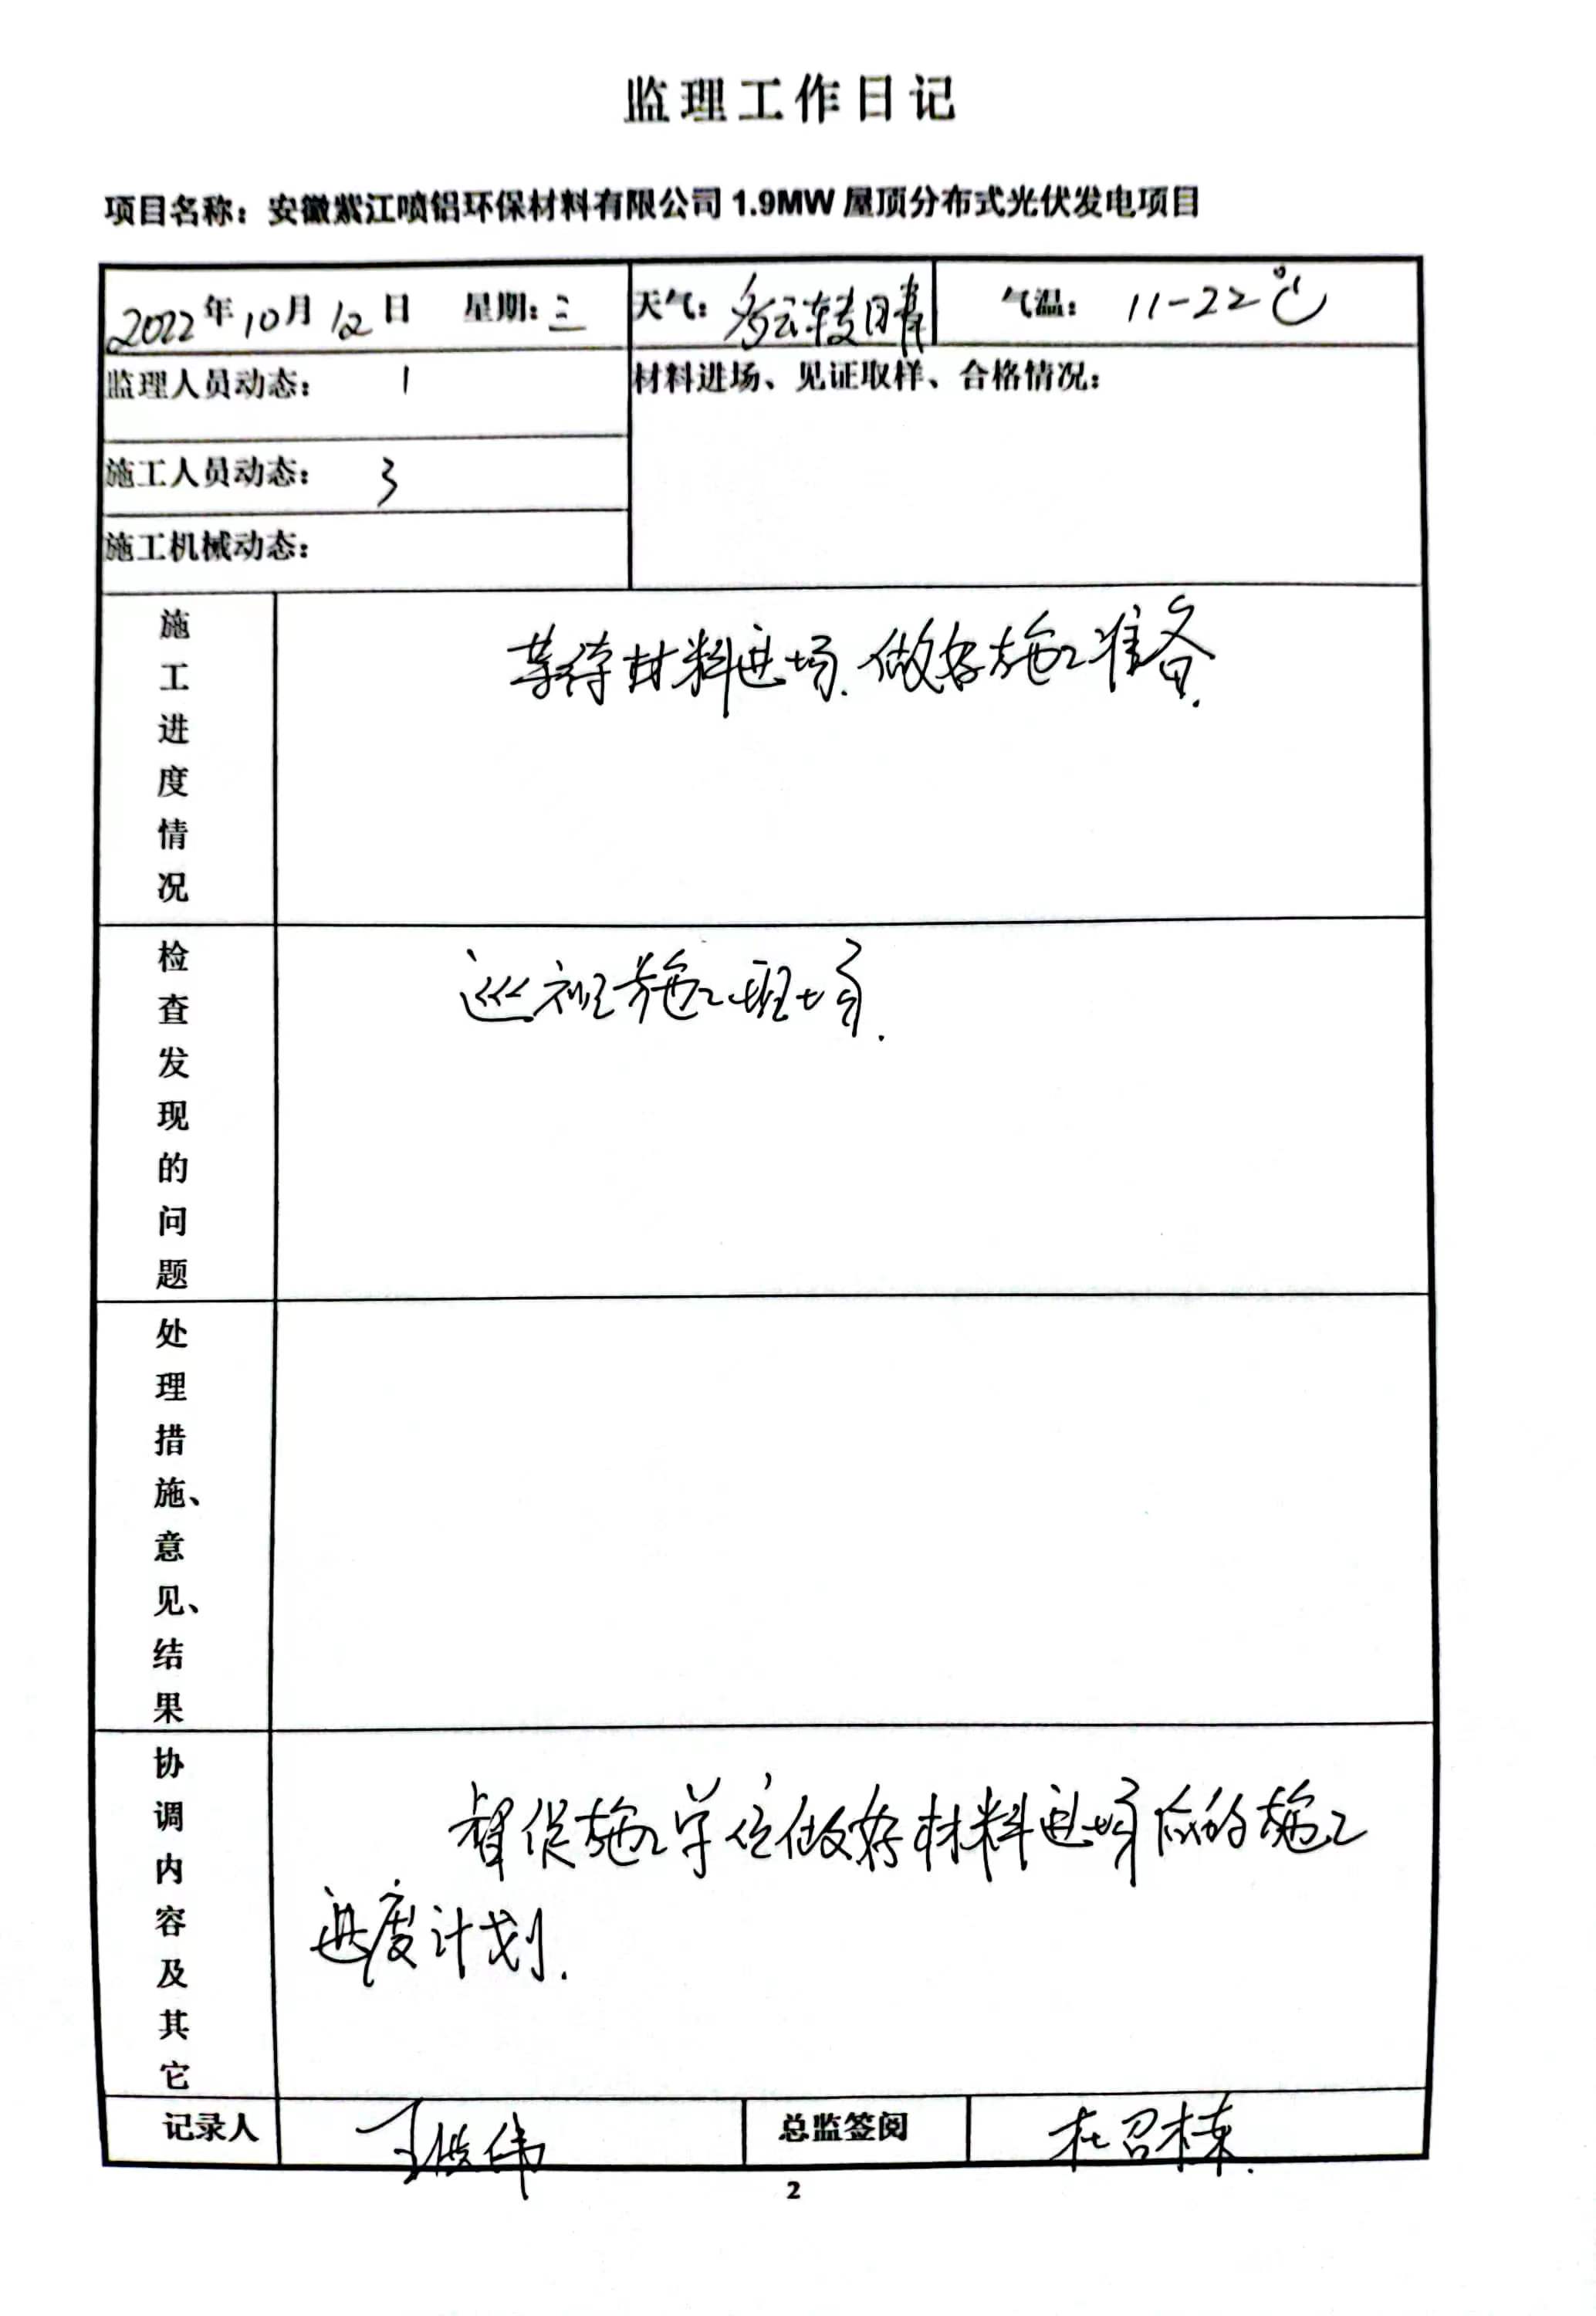 监理工作日记
项目名称：安徽紫江喷铝环保材料有限公司1.9MW屋顶分布式光伏发电项目
2022年10月12日 星期：三 天气：多云转晴 气温：11-22℃
监理人员动态：1 材料进场、见证取样、合格情况：
施工人员动态：3
施工机械动态：
施工进度情况
等待材料进场.做好施工准备.
检查发现的问题
巡视施工现场.
处理措施、意见、结果
协调内容及其它
督促施工单位做好材料进场后的施工
进度计划.
记录人 王 伟 总监签阅 杜召栋.
2